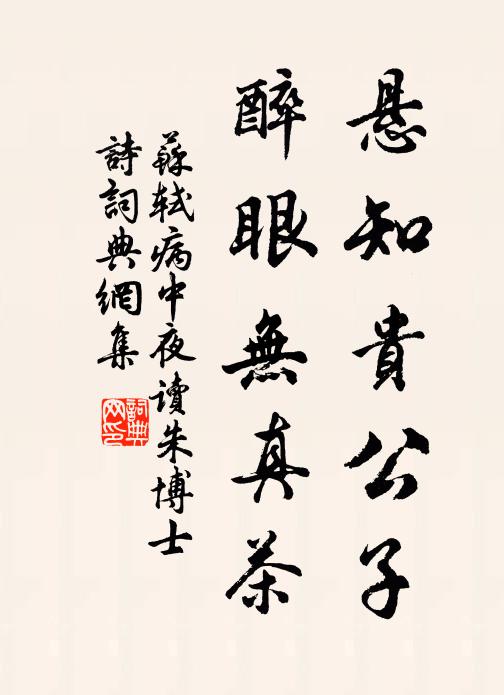 悬知貴公子
醉眼無真茶
蘇軾病中夜讀朱博士
詩詞典網集
詞典網印